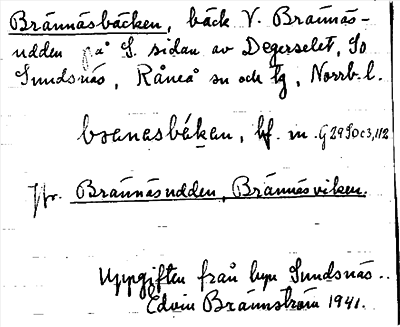 Brännäsbäcken, bäck V. Brännäs-
udden på S. sidan av Degerselet, So
Sundsnäs, Råneå sn och tg, Norrb. l.
brenasbäkan, bf. m.
Jfr. Brännäsudden, Brännäsviken.
Uppgiften från byn Sundsnäs..
Edvin Brännström 1941.